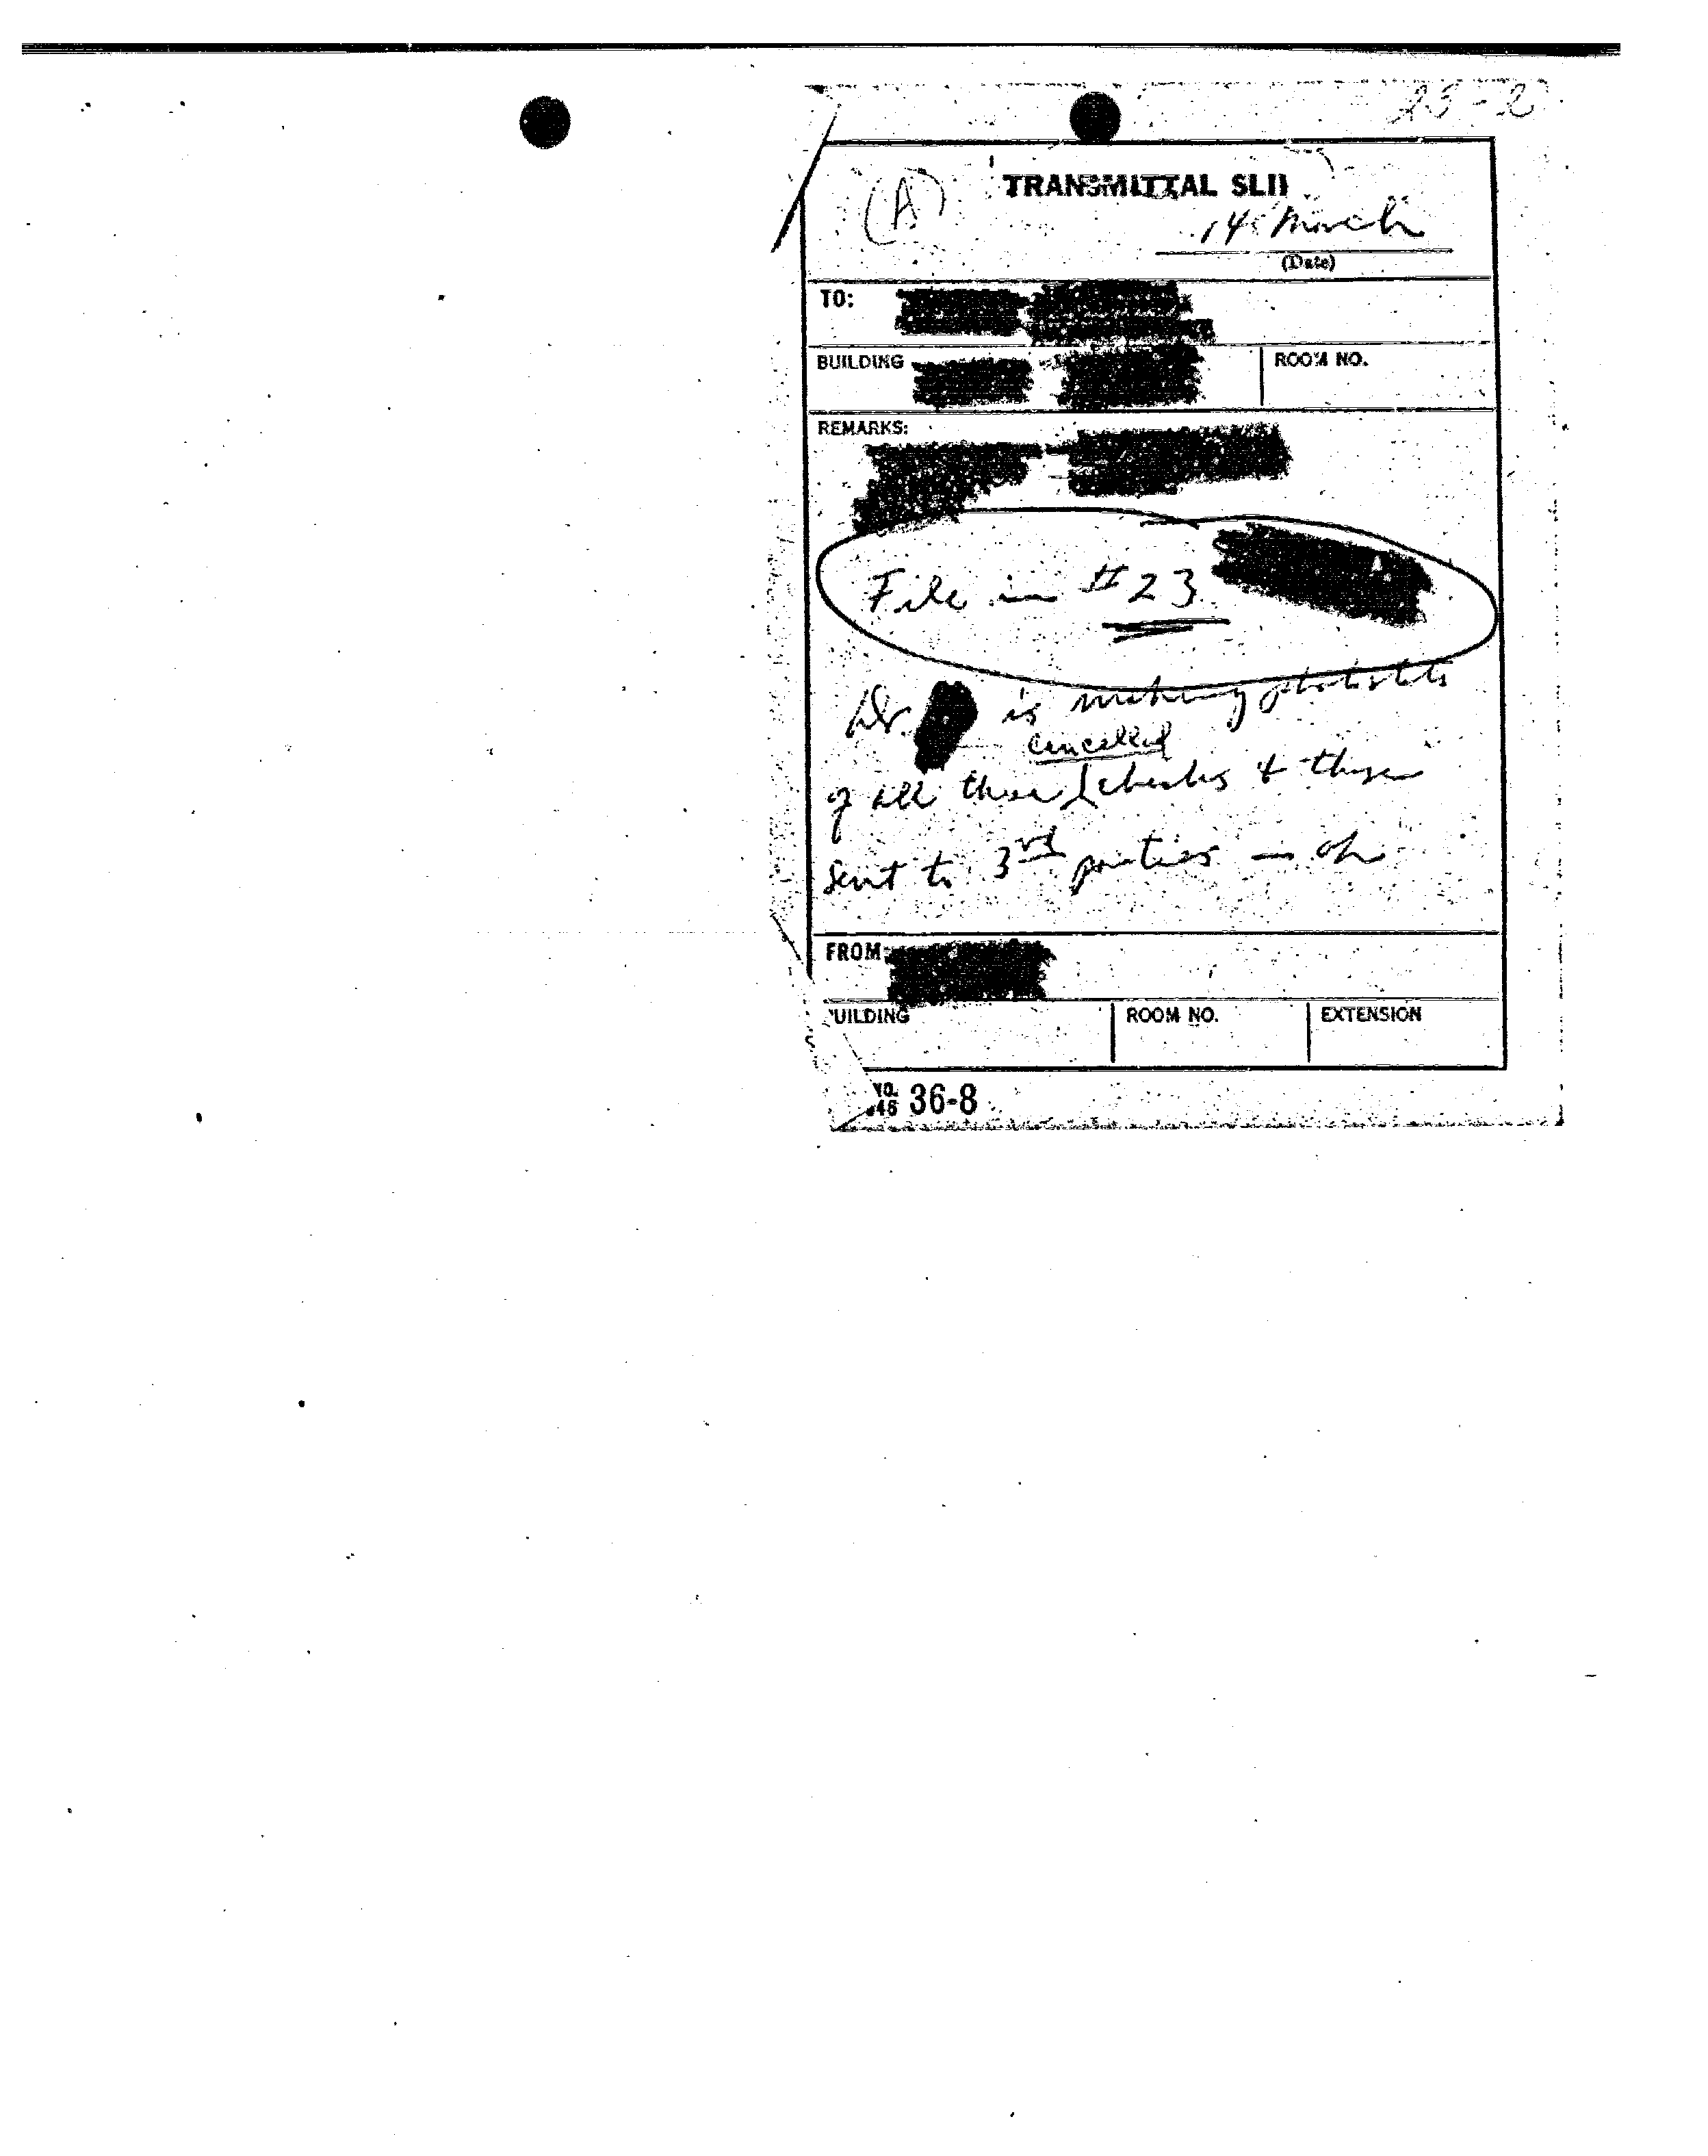 23-2
(A)
TRANSMITTAL SLI
14 March
(Date)
TO:
BUILDING
ROOM NO.
REMARKS:
File in #23
Dr. is making photostats
cancelled
of all these checks & those
sent to 3rd parties — ok
FROM:
UILDING
ROOM NO.
EXTENSION
NO.
36-8